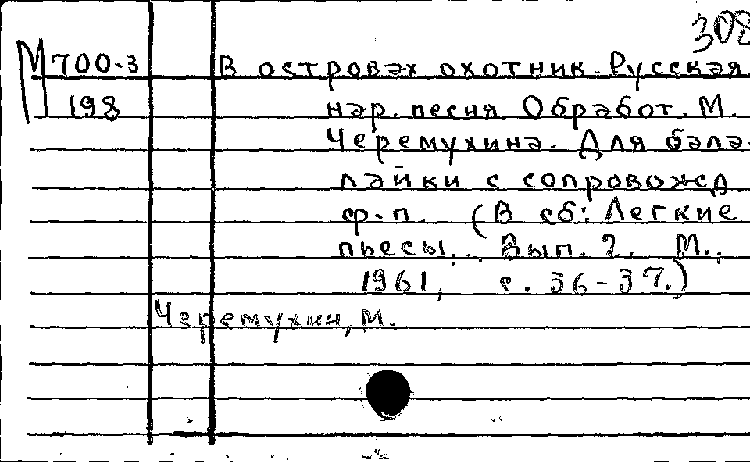 308
М 700-3 В островах охотник. Русская
198 нар. песня Обработ. М.
Черемухина. Для бала-
лайки с сопровожд
ф-п. (В сб: Легкие
пьесы. Вып. 2. М.,
1961, с. 36-37.)
Черемухин, М.